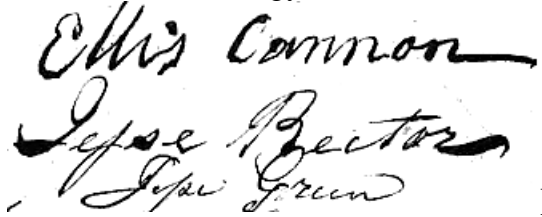 Ellis Cannon
Jesse Rector
Jesse Green